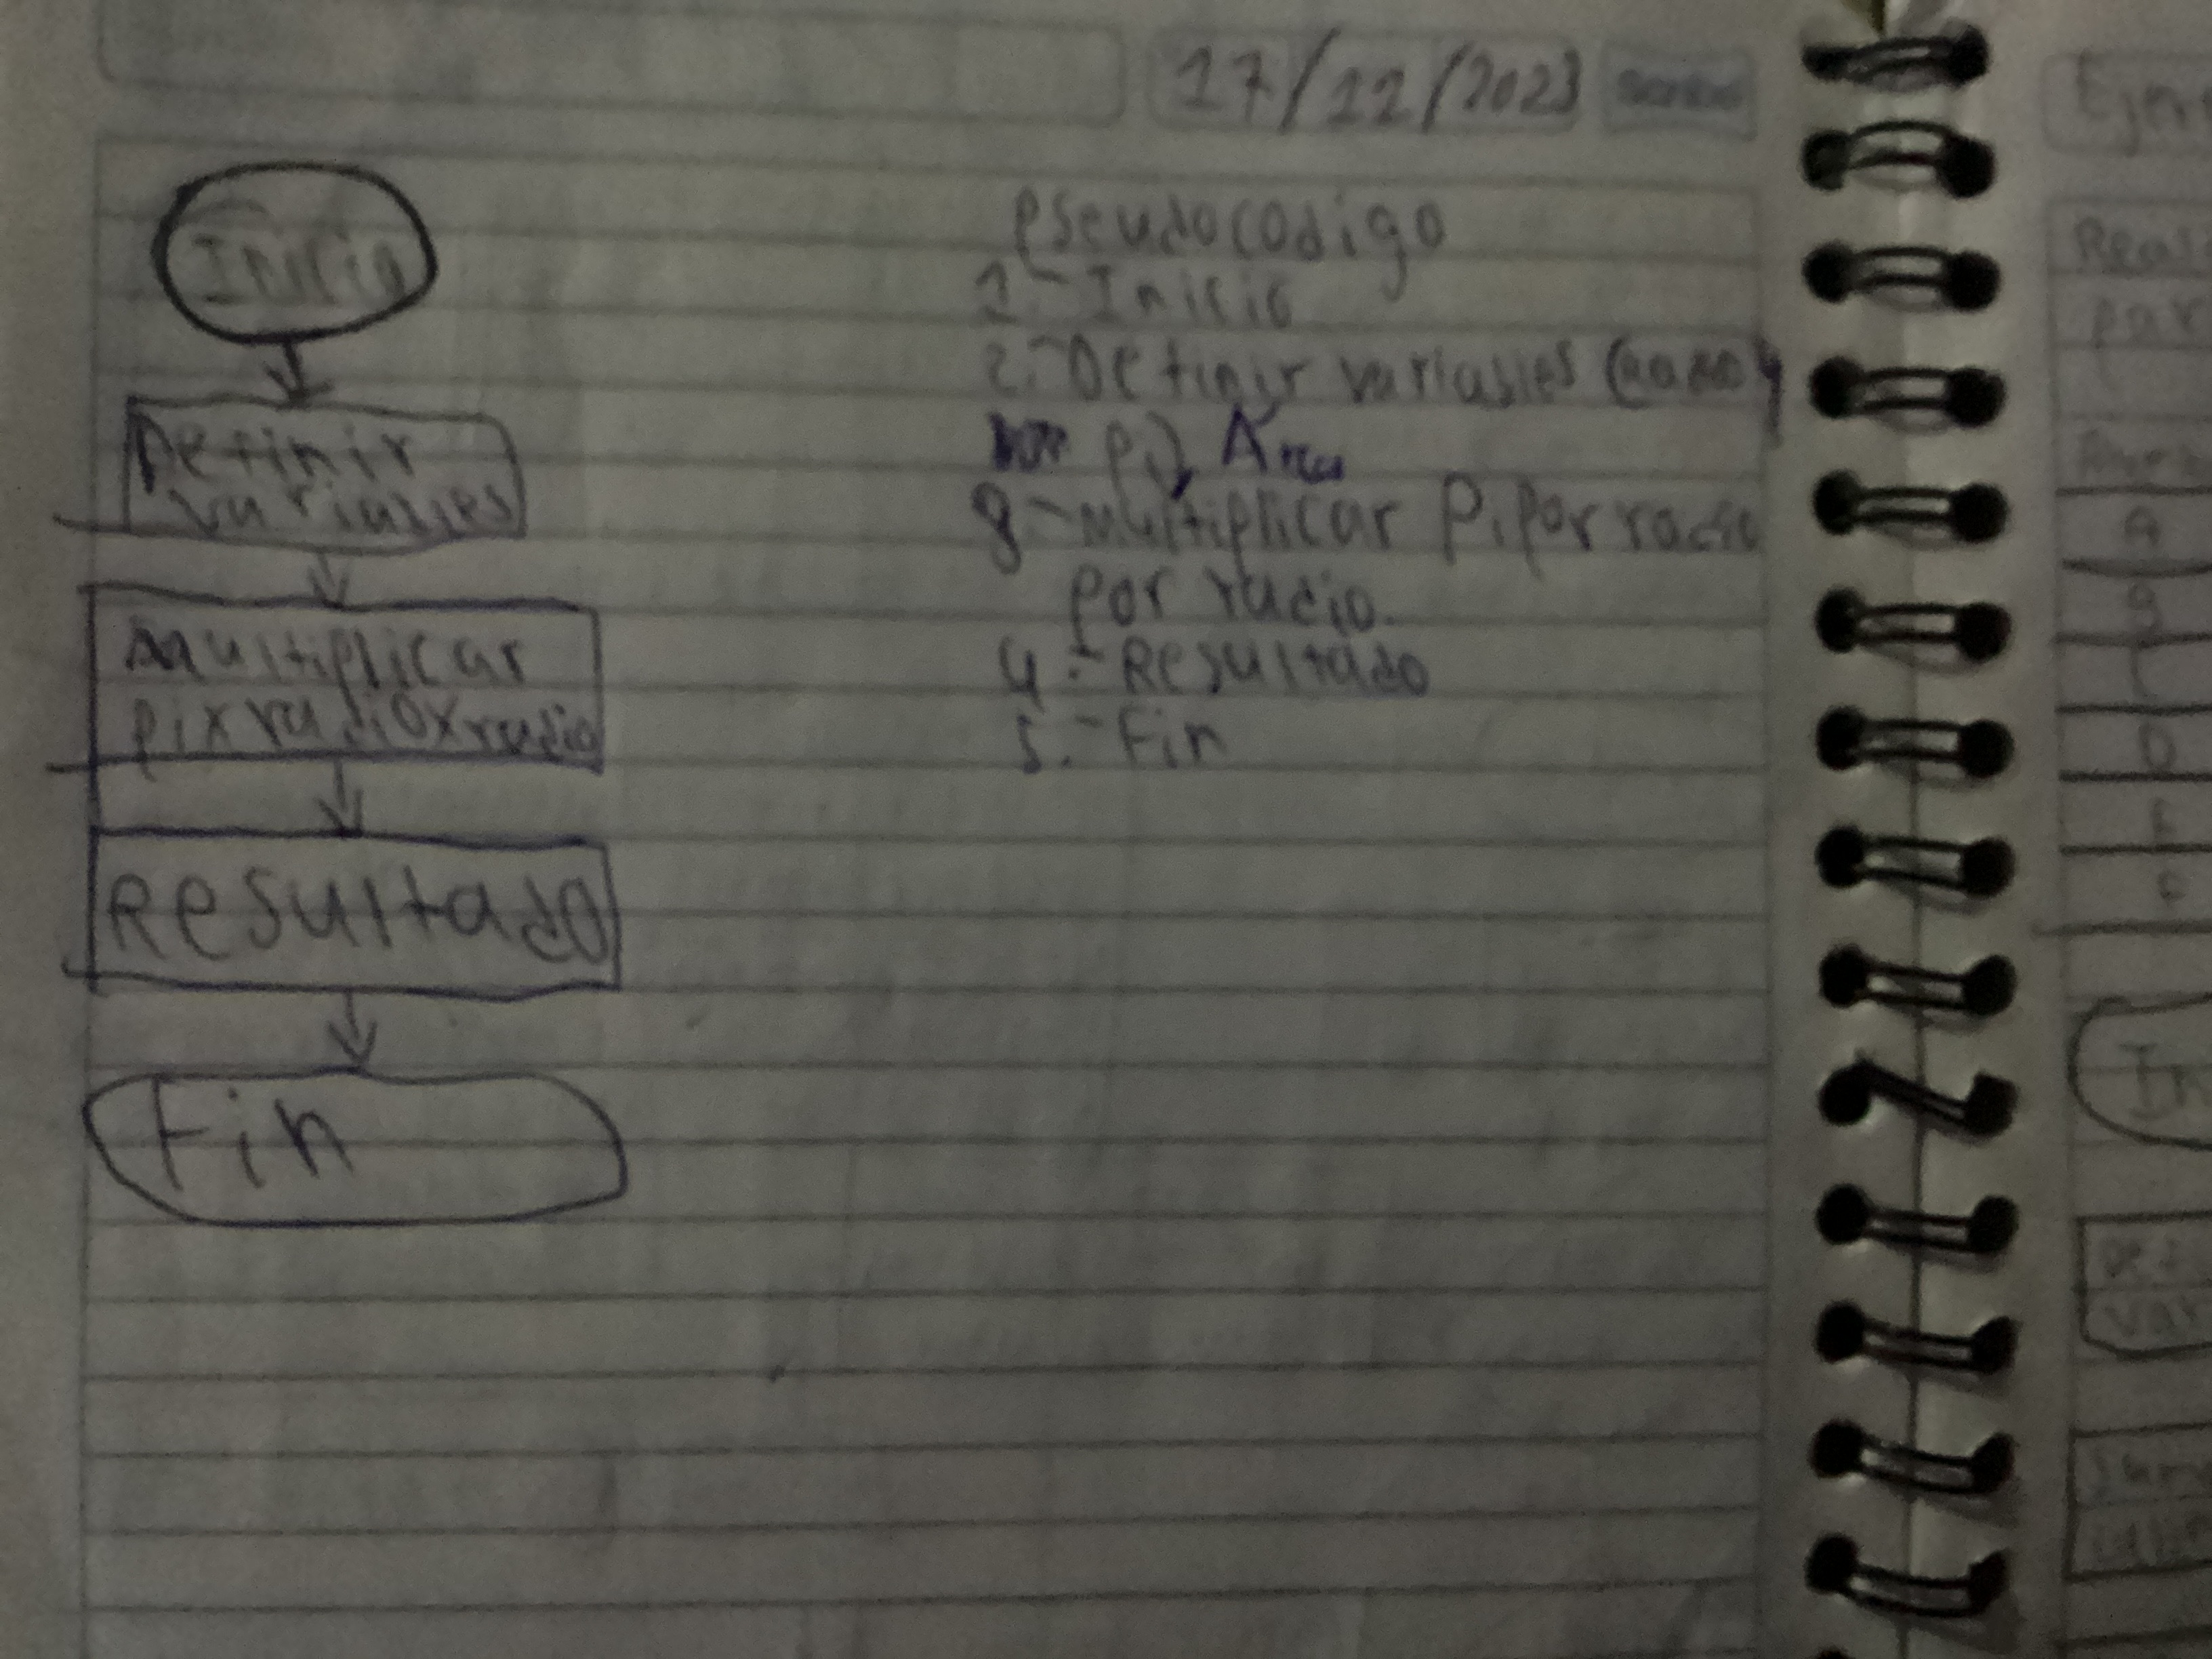 17/12/2023
Inicio
Definir
variables
Multiplicar
pixradioxradio
Resultado
Fin
Pseudocodigo
1.- Inicio
2.- Definir variables
pi), Area
3- multiplicar Pi por radio
por radio.
4.- Resultado
5.- Fin
A
B
C
D
E
F